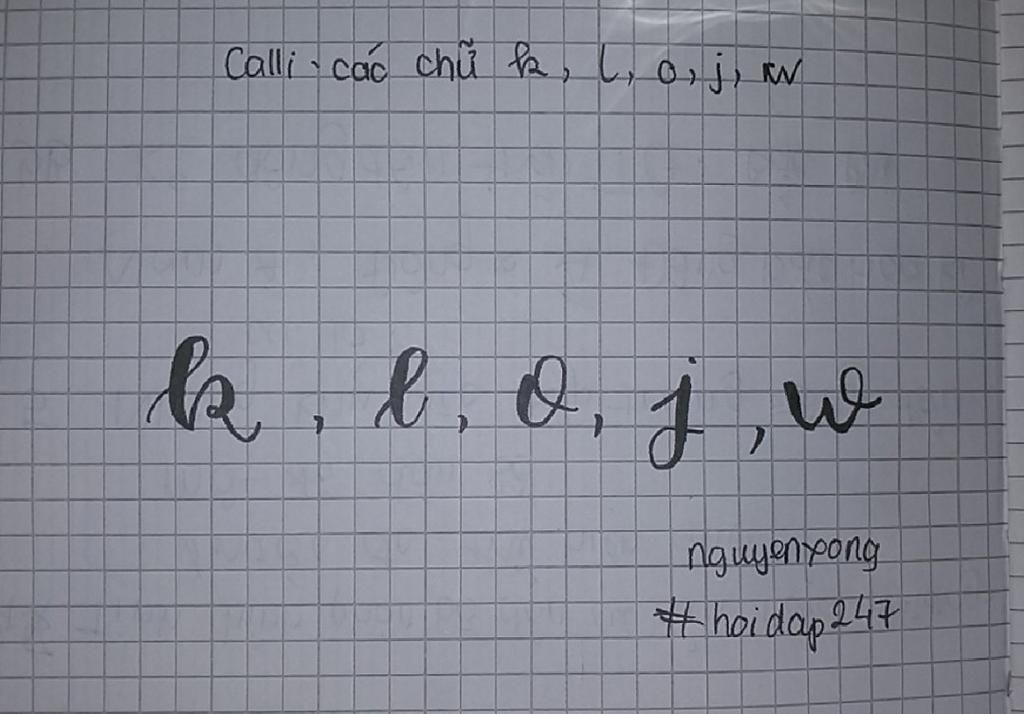 Calli các chữ k, l, o, j, w
k, l, o, j, w
nguyenxong
#hoidap247